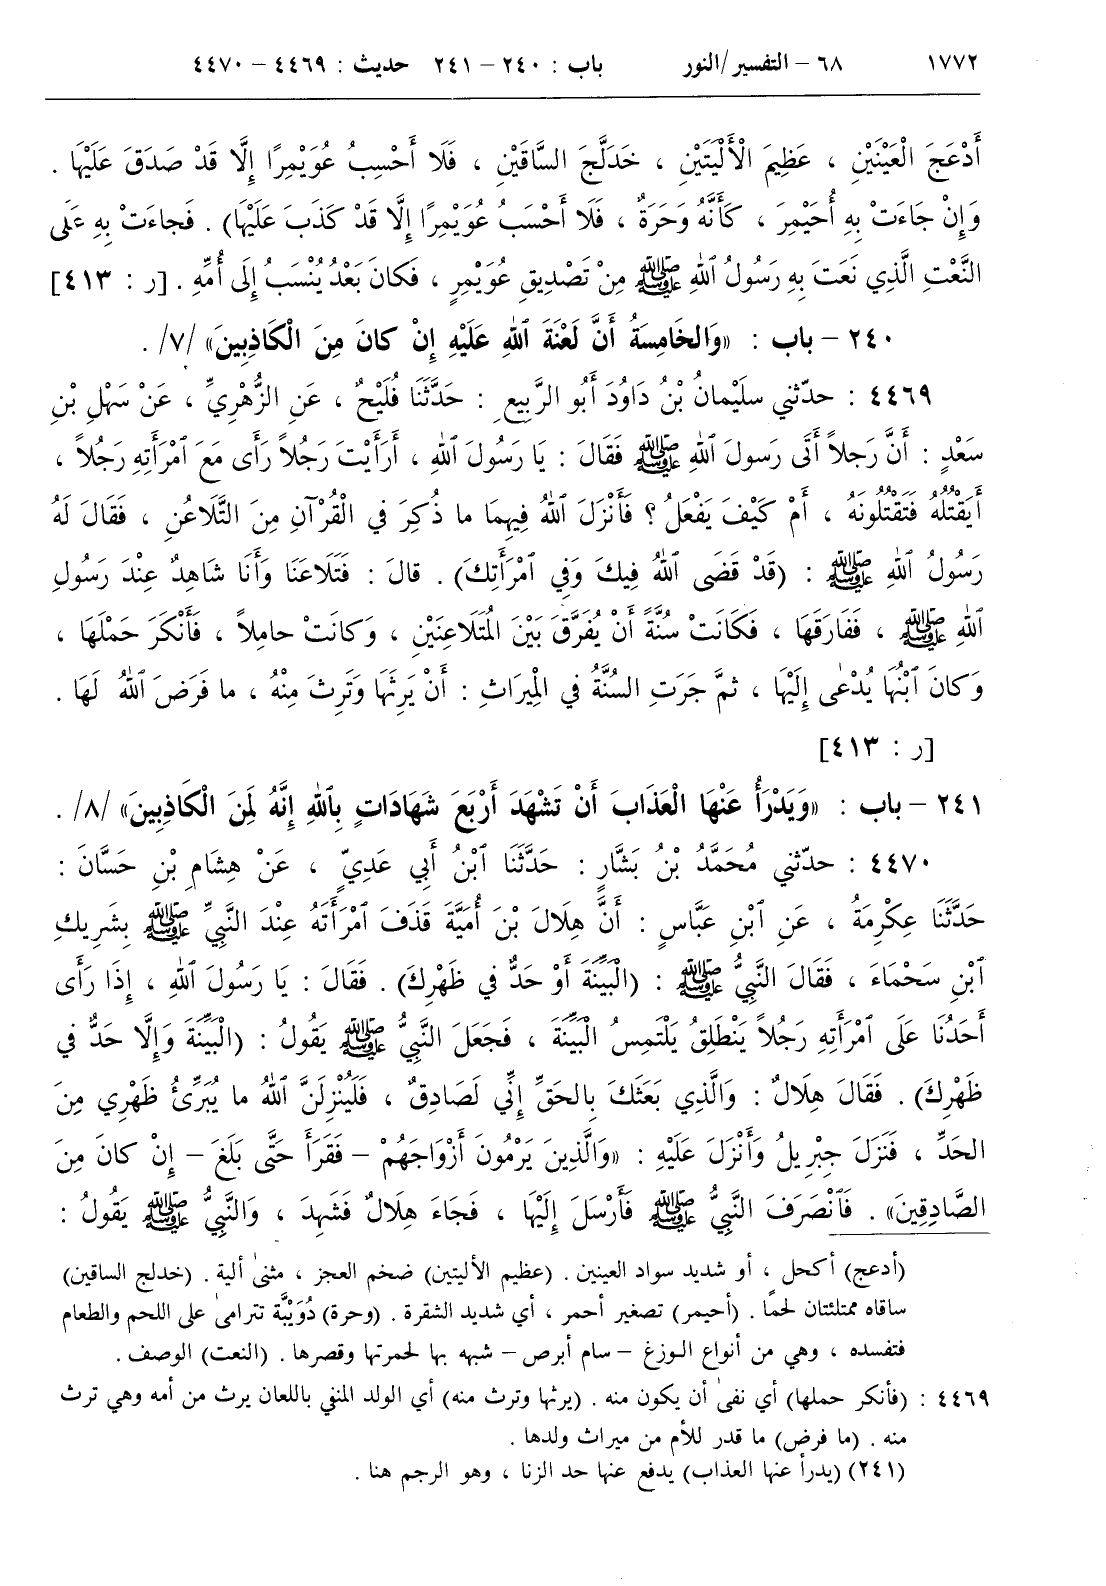 ١٧٧٢ ٦٨ – التفسير/النور باب : ٢٤٠ – ٢٤١ حديث : ٤٤٦٩ – ٤٤٧٠
أَدْعَجَ الْعَيْنَيْنِ ، عَظِيمَ الْأَلْيَتَيْنِ ، خَدَلَّجَ السَّاقَيْنِ ، فَلَا أَحْسِبُ عُوَيْمِرًا إِلَّا قَدْ صَدَقَ عَلَيْهَا .
وَإِنْ جَاءَتْ بِهِ أُحَيْمِرَ ، كَأَنَّهُ وَحَرَةٌ ، فَلَا أَحْسَبُ عُوَيْمِرًا إِلَّا قَدْ كَذَبَ عَلَيْهَا) . فَجاءَتْ بِهِ عَلَى
النَّعْتِ الَّذِي نَعَتَ بِهِ رَسُولُ ٱللهِ ﷺ مِنْ تَصْدِيقِ عُوَيْمِرٍ ، فَكانَ بَعْدُ يُنْسَبُ إِلَى أُمِّهِ . [ر : ٤١٣]
٢٤٠ – باب : «وَالخَامِسَةُ أَنَّ لَعْنَةَ ٱللهِ عَلَيْهِ إِنْ كانَ مِنَ الْكَاذِبِينَ» /٧/ .
٤٤٦٩ : حدّثني سلَيْمانُ بْنُ دَاوُدَ أَبُو الرَّبِيعِ : حَدَّثَنَا فُلَيْحٌ ، عَنِ الزُّهْرِيِّ ، عَنْ سَهْلِ بْنِ
سَعْدٍ : أَنَّ رَجلاً أَتَى رَسولَ ٱللهِ ﷺ فَقَالَ : يَا رَسُولَ ٱللهِ ، أَرَأَيْتَ رَجُلاً رَأَى مَعَ ٱمْرَأَتِهِ رَجُلاً ،
أَيَقْتُلُهُ فَتَقْتُلُونَهُ ، أَمْ كَيْفَ يَفْعَلُ ؟ فَأَنْزَلَ ٱللهُ فِيهِمَا ما ذُكِرَ في الْقُرْآنِ مِنَ التَّلَاعُنِ ، فَقَالَ لَهُ
رَسُولُ ٱللهِ ﷺ : (قَدْ قَضَى ٱللهُ فِيكَ وَفِي ٱمْرَأَتِكَ) . قالَ : فَتَلَاعَنَا وَأَنَا شَاهِدٌ عِنْدَ رَسُولِ
ٱللهِ ﷺ ، فَفَارَقَهَا ، فَكَانَتْ سُنَّةً أَنْ يُفَرَّقَ بَيْنَ المُتَلَاعِنَيْنِ ، وَكانَتْ حامِلاً ، فَأَنْكَرَ حَمْلَهَا ،
وَكانَ ٱبْنُهَا يُدْعٰى إِلَيْهَا ، ثمَّ جَرَتِ السُّنَّةُ في الْمِيرَاثِ : أَنْ يَرِثَهَا وَتَرِثَ مِنْهُ ، ما فَرَضَ ٱللهُ لَهَا .
[ر : ٤١٣]
٢٤١ – باب : «وَيَدْرَأُ عَنْهَا الْعَذَابَ أَنْ تَشْهَدَ أَرْبَعَ شَهَادَاتٍ بِٱللهِ إِنَّهُ لَمِنَ الْكَاذِبِينَ» /٨/ .
٤٤٧٠ : حدّثني مُحَمَّدُ بْنُ بَشَّارٍ : حَدَّثَنَا ٱبْنُ أَبِي عَدِيٍّ ، عَنْ هِشَامِ بْنِ حَسَّانَ :
حَدَّثَنَا عِكْرِمَةُ ، عَنِ ٱبْنِ عَبَّاسٍ : أَنَّ هِلَالَ بْنَ أُمَيَّةَ قَذَفَ ٱمْرَأَتَهُ عِنْدَ النَّبِيِّ ﷺ بِشَرِيكِ
ٱبْنِ سَحْمَاءَ ، فَقَالَ النَّبِيُّ ﷺ : (الْبَيِّنَةَ أَوْ حَدٌّ في ظَهْرِكَ) . فَقَالَ : يَا رَسُولَ ٱللهِ ، إِذَا رَأَى
أَحَدُنَا عَلَى ٱمْرَأَتِهِ رَجُلاً يَنْطَلِقُ يَلْتَمِسُ الْبَيِّنَةَ ، فَجَعَلَ النَّبِيُّ ﷺ يَقُولُ : (الْبَيِّنَةَ وَإِلَّا حَدٌّ في
ظَهْرِكَ) . فَقَالَ هِلَالٌ : وَالَّذِي بَعَثَكَ بِالحَقِّ إِنِّي لَصَادِقٌ ، فَلَيُنْزِلَنَّ ٱللهُ ما يُبَرِّئُ ظَهْرِي مِنَ
الحَدِّ ، فَنَزَلَ جِبْرِيلُ وَأَنْزَلَ عَلَيْهِ : «وَالَّذِينَ يَرْمُونَ أَزْوَاجَهُمْ – فَقَرَأَ حَتَّى بَلَغَ – إِنْ كانَ مِنَ
الصَّادِقِينَ» . فَٱنْصَرَفَ النَّبِيُّ ﷺ فَأَرْسَلَ إِلَيْهَا ، فَجَاءَ هِلَالٌ فَشَهِدَ ، وَالنَّبِيُّ ﷺ يَقُولُ :
(أدعج) أكحل ، أو شديد سواد العينين . (عظيم الأليتين) ضخم العجز ، مثنىٰ ألية . (خدلج الساقين)
ساقاه ممتلئتان لحمًا . (أحيمر) تصغير أحمر ، أي شديد الشقرة . (وحرة) دُوَيْبَّة تترامىٰ على اللحم والطعام
فتفسده ، وهي من أنواع الوزغ – سام أبرص – شبهه بها لحمرتها وقصرها . (النعت) الوصف .
٤٤٦٩ : (فأنكر حملها) أي نفىٰ أن يكون منه . (يرثها وترث منه) أي الولد المنفي باللعان يرث من أمه وهي ترث
منه . (ما فرض) ما قدر للأم من ميراث ولدها .
(٢٤١) (يدرأ عنها العذاب) يدفع عنها حد الزنا ، وهو الرجم هنا .